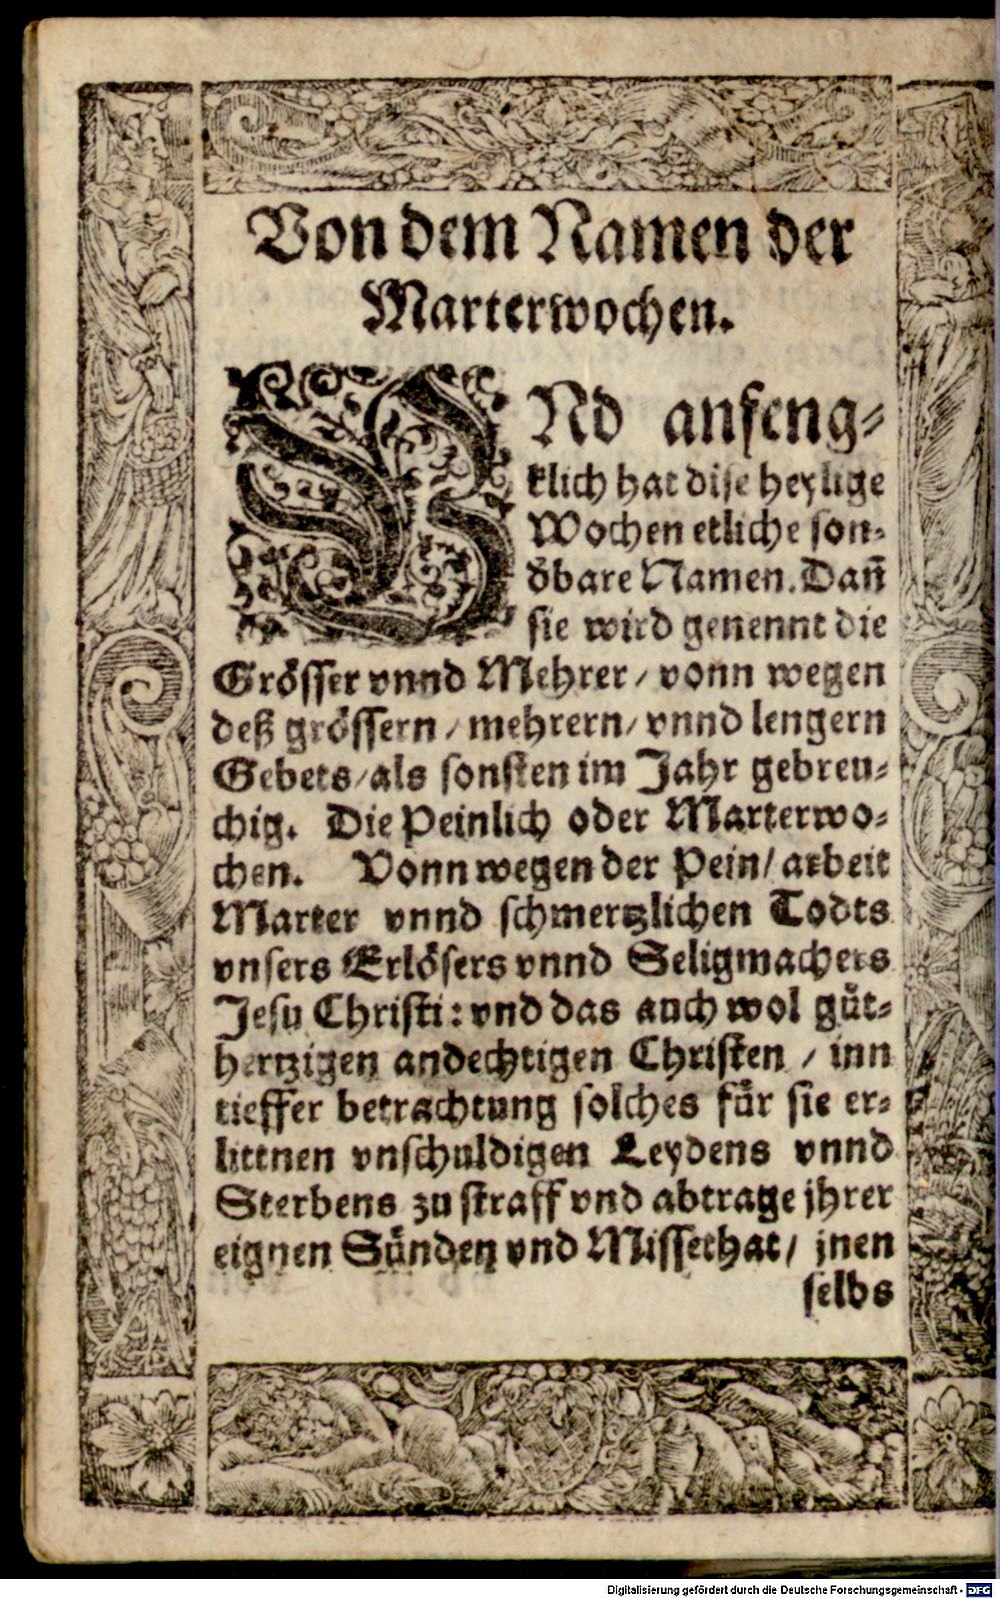 Von dem Namen der
Marterwochen.
VNd anfeng⸗
klich hat dise heylige
Wochen etliche son⸗
dʹbare Namen. Dañ
sie wird genennt die
Grösser vnnd Mehrer / vonn wegen
deß grössern / mehrern / vnnd lengern
Gebets / als sonsten im Jahr gebreu⸗
chig. Die Peinlich oder Marterwo⸗
chen. Vonn wegen der Pein / arbeit
Marter vnnd schmertzlichen Todts
vnsers Erlösers vnnd Seligmachers
Jesu Christi: vnd das auch wol guͤt⸗
hertzigen andechtigen Christen / inn
tieffer betrachtung solches fuͤr sie er⸗
littnen vnschuldigen Leydens vnnd
Sterbens zu straff vnd abtrage jhrer
eignen Sünden vnd Missethat / jnen
selbs
Digitalisierung gefördert durch die Deutsche Forschungsgemeinschaft - DFG